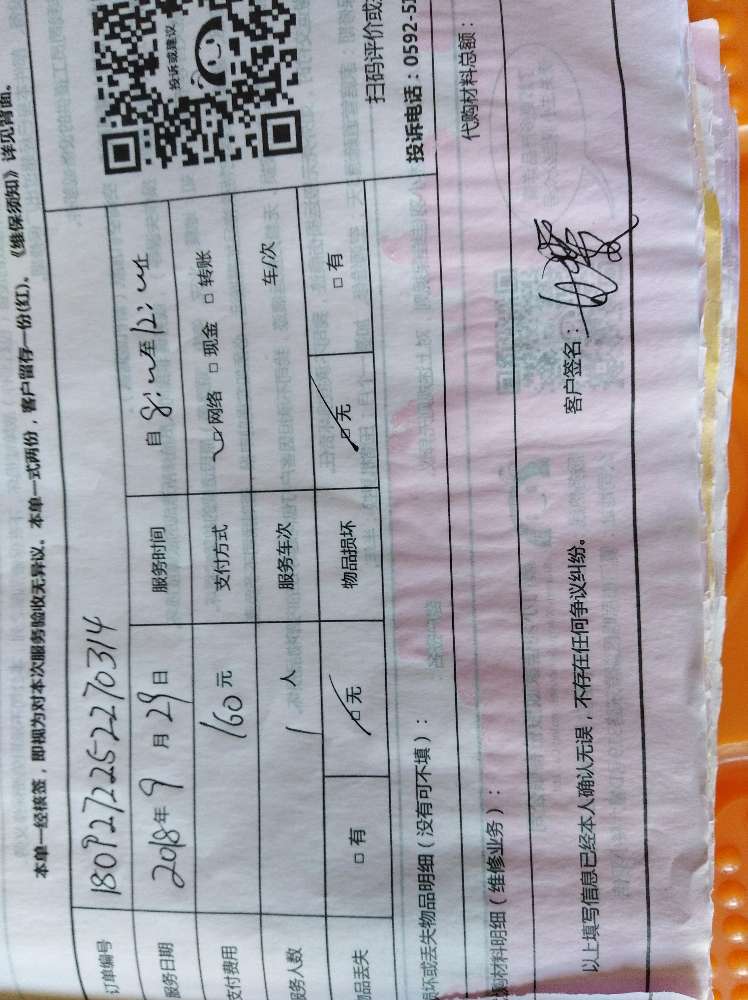 本单一经核签，即视为对本次服务验收无异议。本单一式两份，客户留存一份(红)。《维保须知》详见背面。
订单编号 1809272252270314
服务日期 2018年9月29日 服务时间 自 至
支付费用 160元 支付方式 □网络 □现金 □转账
服务人数 1人 服务车次 车/次
物品丢失 □有 □无 物品损坏 □无 □有
投诉或建议
扫码评价或
投诉电话：0592-5
损坏或丢失物品明细（没有可不填）：
购材料明细（维修业务）： 代购材料总额：
以上填写信息已经本人确认无误，不存在任何争议纠纷。 客户签名：